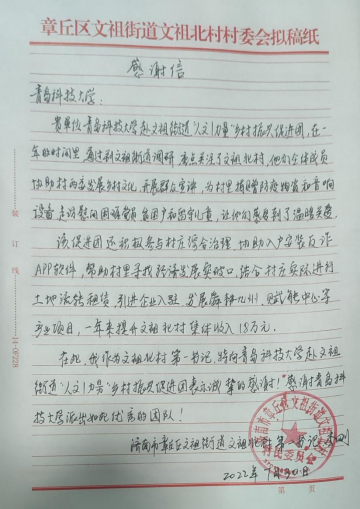 章丘区文祖街道文祖北村村委会拟稿纸
感谢信
青岛科技大学:
贵单位青岛科技大学赴文祖街道"人文力量"乡村振兴促进团,在一
年的时间里,通过到文祖街道调研,重点关注了文祖北村,他们全体成员
协助村两委发展乡村文化,开展群众宣讲,为村里捐赠防疫物资和音响
设备,走访慰问困难党员、贫困户和留守儿童,让他们感受到了温暖关爱。
该促进团还积极参与村庄综合治理,协助入户安装反诈
APP软件,帮助村里寻找经济发展突破口,结合村庄实际进行
土地流转租赁,引进企业入驻,发展舞动九州,赋能中心等
产业项目,一年来提升文祖北村集体收入18万元。
在此,我作为文祖北村第一书记,特向青岛科技大学赴文祖
街道"人文力量"乡村振兴促进团表示诚挚的感谢!感谢青岛科
技大学派出如此优秀的团队!
济南市章丘区文祖街道文祖北村第一书记
2022年
装订线
第 页